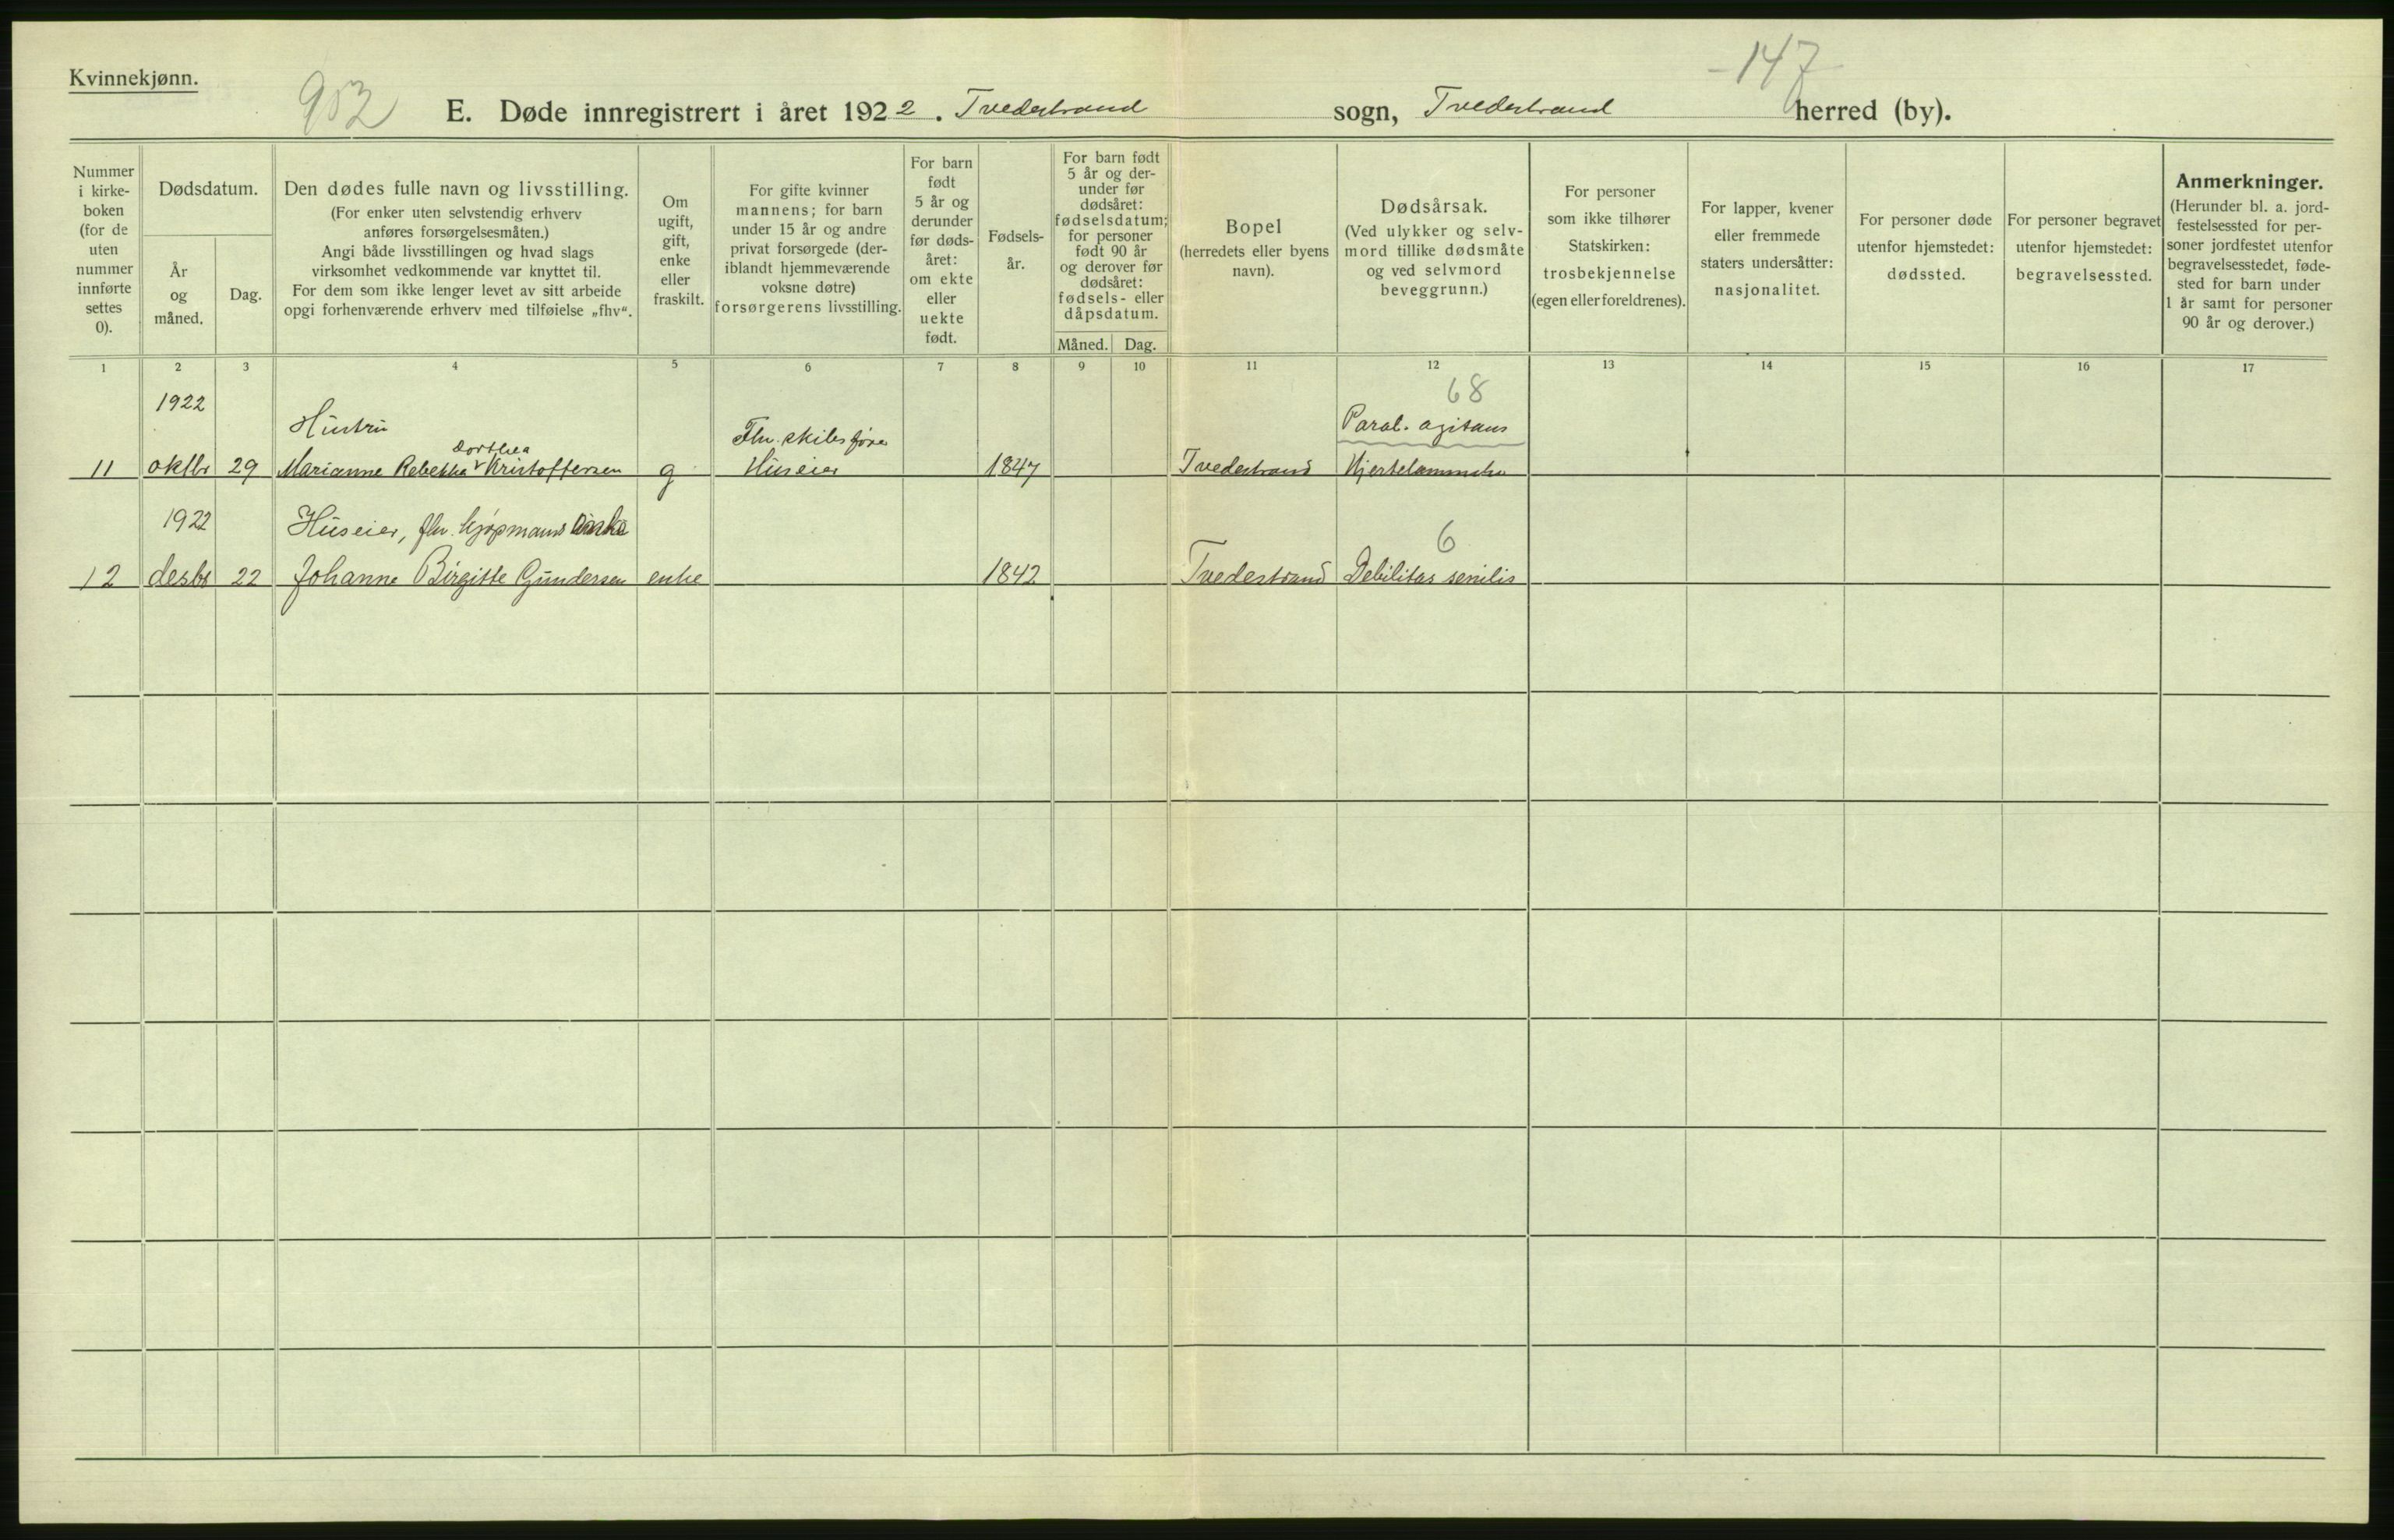 Kvinnekjønn.
952
-147
E. Døde innregistrert i året 1922. Tvedestrand sogn, Tvedestrand herred (by).
Nummer
i kirke-
boken
(for de
uten
nummer
innførte
settes
0).
Dødsdatum.
År
og
måned.
Dag.
Den dødes fulle navn og livsstilling.
(For enker uten selvstendig erhverv
anføres forsørgelsesmåten.)
Angi både livsstillingen og hvad slags
virksomhet vedkommende var knyttet til.
For dem som ikke lenger levet av sitt arbeide
opgi forhenværende erhverv med tilføielse „fhv“.
Om
ugift,
gift,
enke
eller
fraskilt.
For gifte kvinner
mannens; for barn
under 15 år og andre
privat forsørgede (der-
iblandt hjemmeværende
voksne døtre)
forsørgerens livsstilling.
For barn
født
5 år og
derunder
før døds-
året:
om ekte
eller
uekte
født.
Fødsels-
år.
For barn født
5 år og der-
under før
dødsåret:
fødselsdatum;
for personer
født 90 år
og derover før
dødsåret:
fødsels- eller
dåpsdatum.
Måned. Dag.
Bopel
(herredets eller byens
navn).
Dødsårsak.
(Ved ulykker og selv-
mord tillike dødsmåte
og ved selvmord
beveggrunn.)
For personer
som ikke tilhører
Statskirken:
trosbekjennelse
(egen eller foreldrenes).
For lapper, kvener
eller fremmede
staters undersåtter:
nasjonalitet.
For personer døde
utenfor hjemstedet:
dødssted.
For personer begravet
utenfor hjemstedet:
begravelsessted.
Anmerkninger.
(Herunder bl. a. jord-
festelsessted for per-
soner jordfestet utenfor
begravelsesstedet, føde-
sted for barn under
1 år samt for personer
90 år og derover.)
1 2 3 4 5 6 7 8 9 10 11 12 13 14 15 16 17
1922 68
Hustru Fhv. skibsfører Paral. agitans
Dorthea
11 oktbr 29 Marianne Rebekka Kristoffersen g Huseier 1847 Tvedestrand Hjertelammelse
1922 Huseier, fhv. kjøpmanns enke 6
12 desbr 22 Johanne Birgitte Gundersen enke 1842 Tvedestrand Debilitas senilis